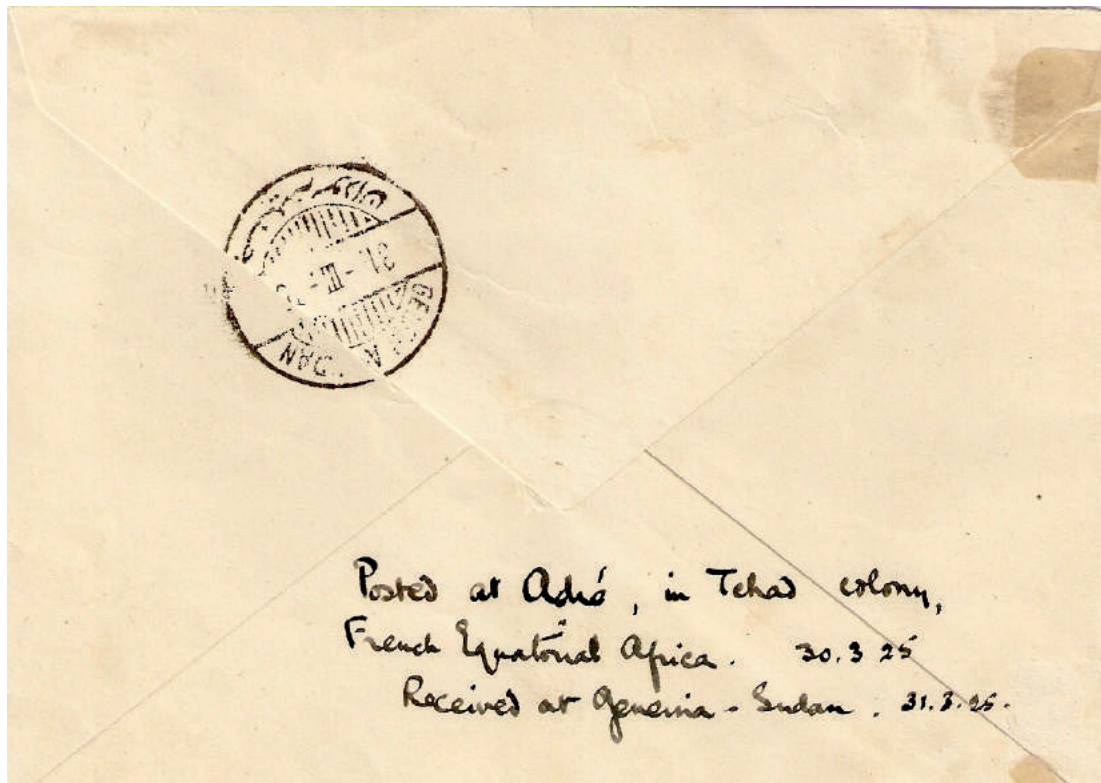 31 - III -
GE
DAN
Posted at Adré, in Tchad colony,
French Equatorial Africa. 30.3 25
Received at Geneina - Sudan. 31.3.25.